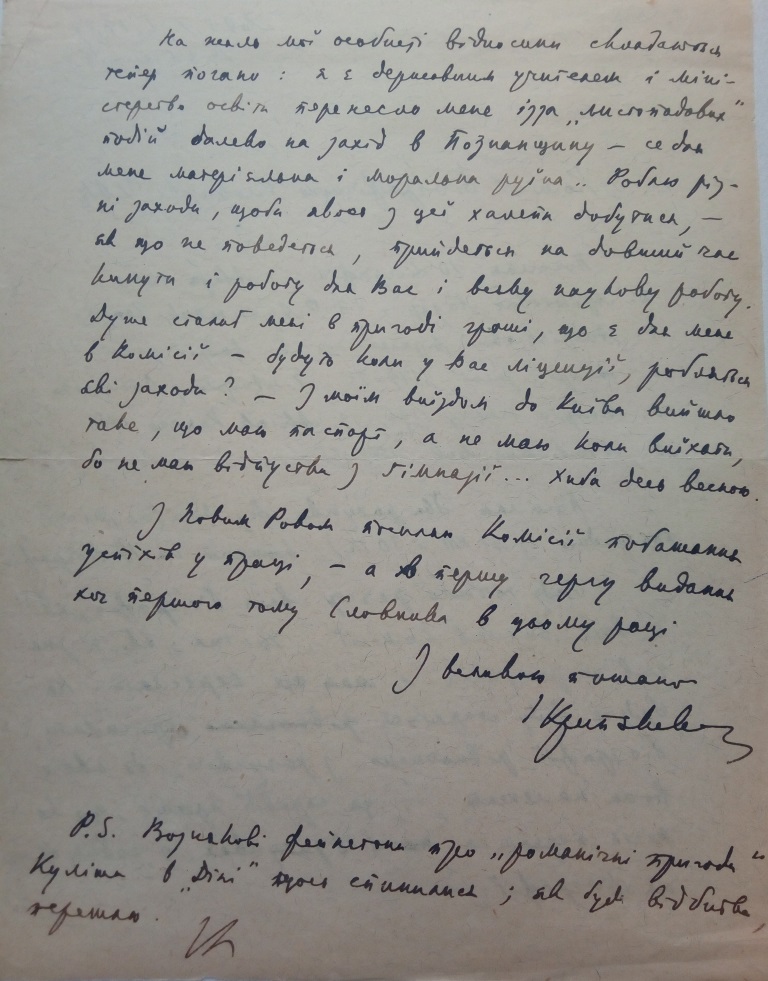 На жаль мої особисті відносини складаються
тепер погано: я є державним учителем і міні-
стерство освіти перенесло мене ізза „листопадових“
подій далеко на захід в Познанщину – се для
мене матеріяльна і моральна руїна.. Роблю різ-
ні заходи, щоби якось з цеї халепи добутися, –
як що не поведеться, прийдеться на довший час
кинути і роботу для Вас і всяку наукову роботу.
Дуже стали мені в пригоді гроші, що є для мене
в Комісії – будуть коли у Вас ліцензії, робляться
які заходи? – З моїм виїздом до Київа вийшло
таке, що маю паспорт, а не маю коли виїхати,
бо не маю відпустки з гімназії... Хиба десь весною.
З Новим Роком посилаю Комісії побажання
успіхів у праці, – а в першу чергу видання
хоч першого тому Словника в цьому році
З великою пошаною
І Крипякевич
P.S. Вознякові фейлетони про „романічні пригоди“
Куліша в „Ділі“ щось спинилися; як буде відбитка,
перешлю.
ІК